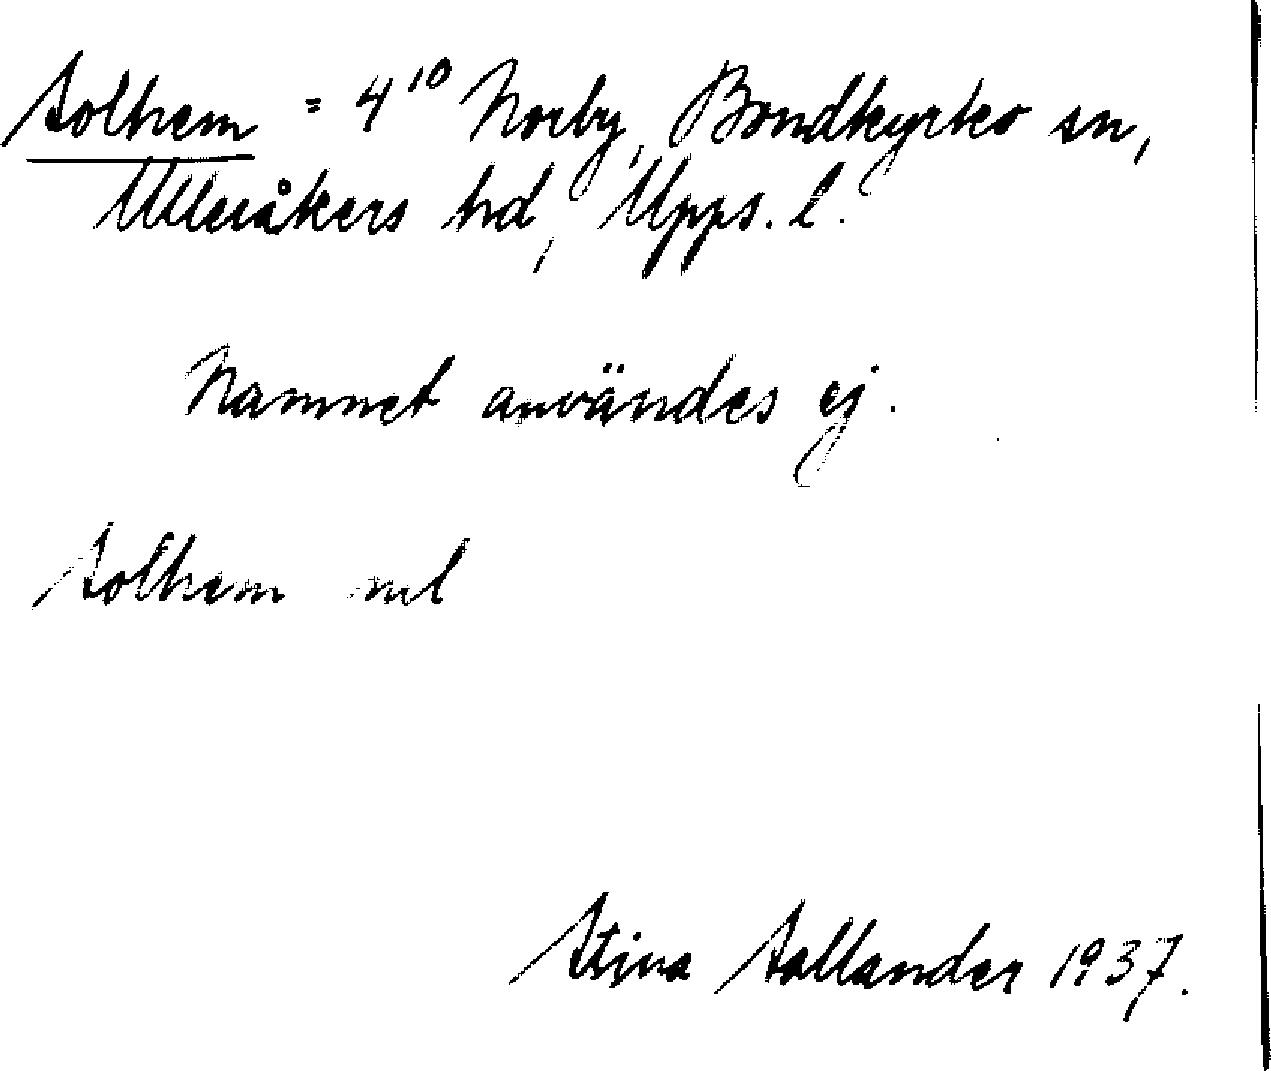 Solhem = 4¹⁰ Norby, Bondkyrko sn,
Ulleråkers hd, Upps. l.
Namnet användes ej.
Solhem
Stina Sallander 1937.